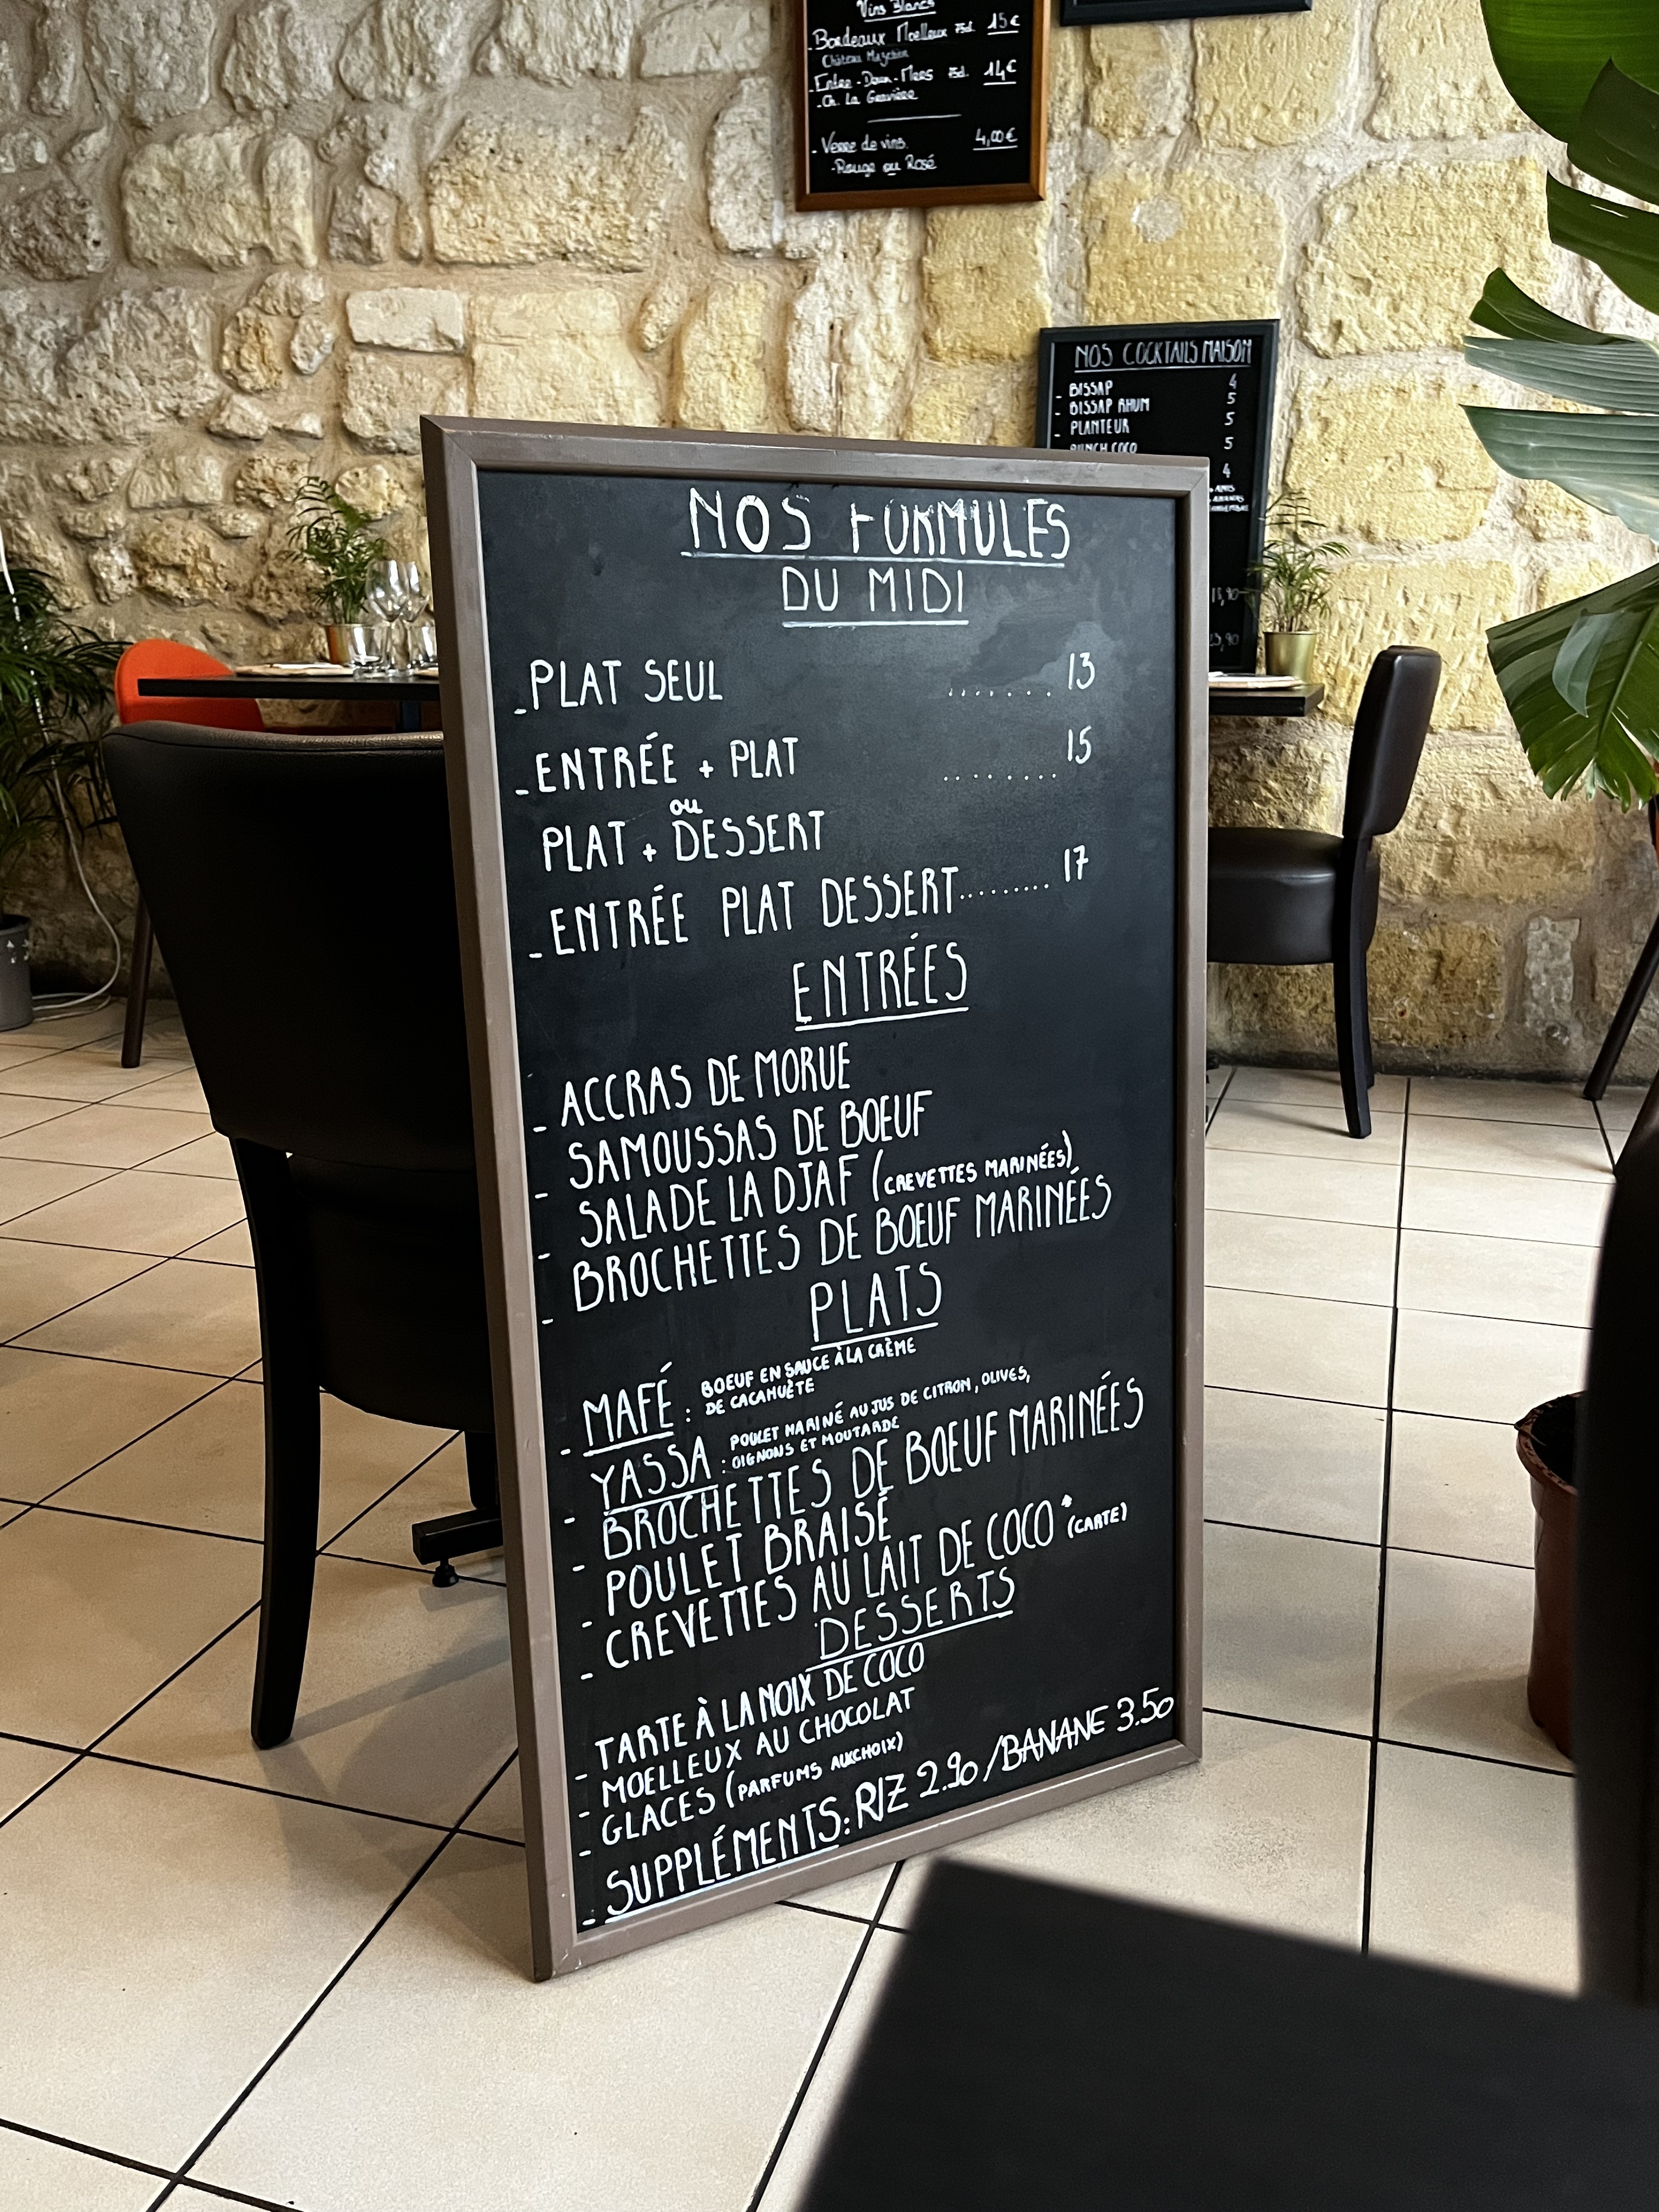 Vins Blancs
- Bordeaux Moelleux 75cl. 15€
- Entre-Deux-Mers 75cl. 14€
- Ch. La Gravière
- Verre de vins. 4,00€
- Rouge ou Rosé
NOS COCKTAILS MAISON
- BISSAP 4
- BISSAP RHUM 5
- PLANTEUR 5
PUNCH COCO 5
4
NOS FORMULES
DU MIDI
- PLAT SEUL ....... 13
- ENTRÉE + PLAT ........ 15
ou
PLAT + DESSERT
- ENTRÉE PLAT DESSERT......... 17
ENTRÉES
- ACCRAS DE MORUE
- SAMOUSSAS DE BOEUF
- SALADE LA DJAF (CREVETTES MARINÉES)
- BROCHETTES DE BOEUF MARINÉES
PLATS
- MAFÉ : BOEUF EN SAUCE À LA CRÈME
DE CACAHUÈTE
- YASSA : POULET MARINÉ AU JUS DE CITRON, OLIVES,
OIGNONS ET MOUTARDE
- BROCHETTES DE BOEUF MARINÉES
- POULET BRAISÉ
- CREVETTES AU LAIT DE COCO * (CARTE)
DESSERTS
- TARTE À LA NOIX DE COCO
- MOELLEUX AU CHOCOLAT
- GLACES (PARFUMS AUCHOIX)
- SUPPLÉMENTS: RIZ 2.90 /BANANE 3.50